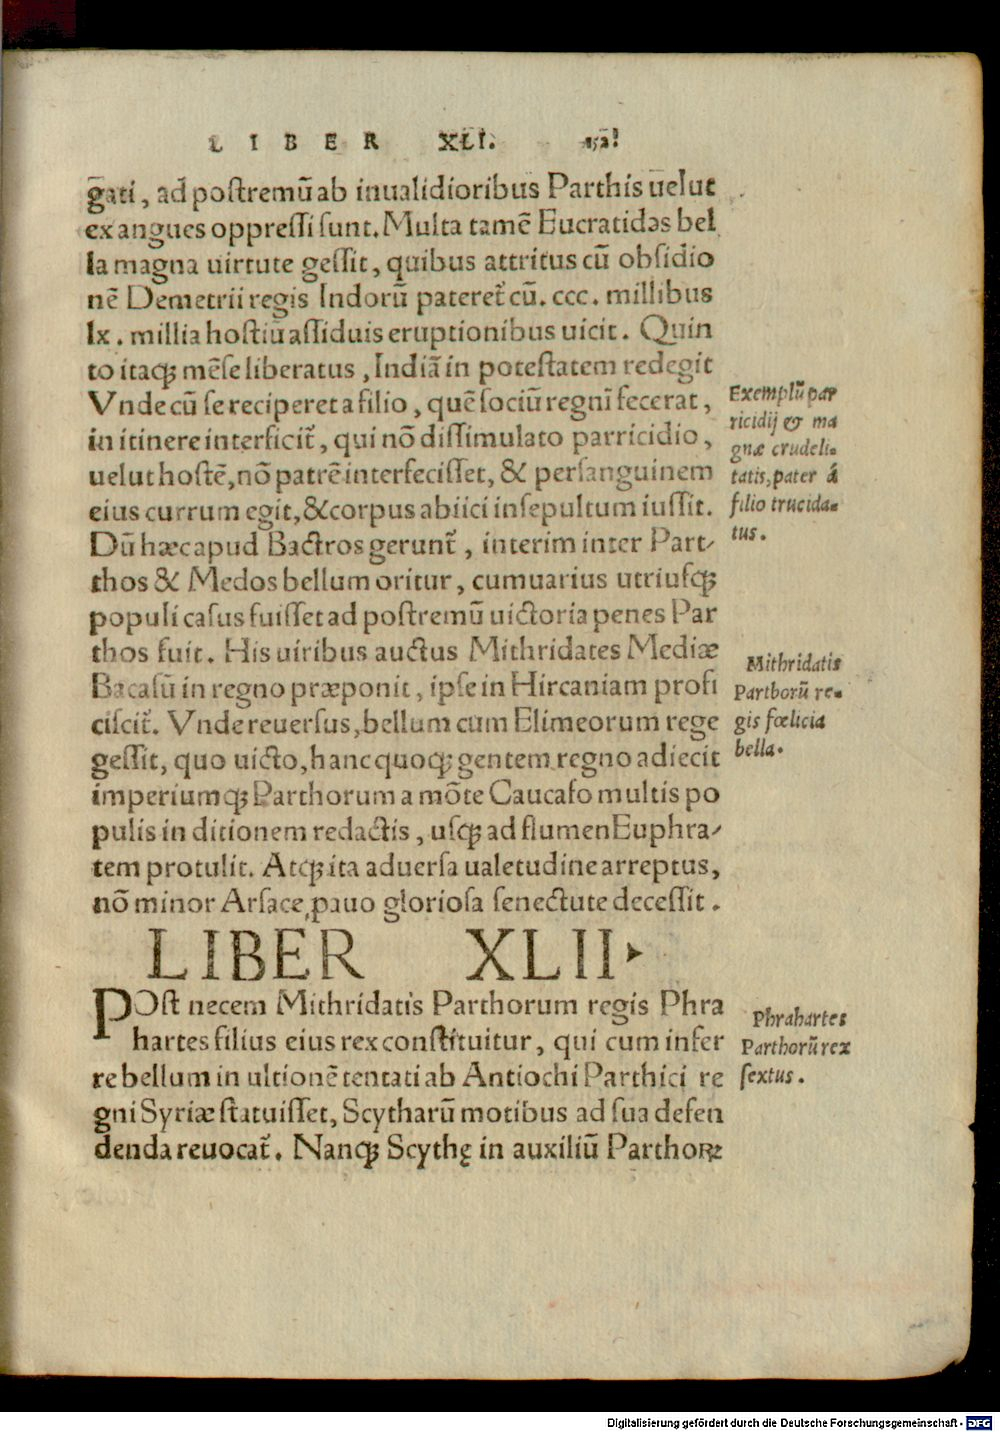 LIBER XLI. 152
gati, ad postremū ab inualidioribus Parthis uelut
exangues oppressi sunt. Multa tamē Eucratides bel
la magna uirtute gessit, quibus attritus cū obsidio
nē Demetrii regis Indorū pateret᷑ cū. ccc. millibus
lx. millia hostiū assiduis eruptionibus uicit. Quin
to itaqꝫ mēse liberatus, Indiā in potestatem redegit
Vnde cū se reciperet a filio, quē sociū regni fecerat,
in itinere interficit᷑, qui nō dissimulato parricidio,
uelut hostē, nō patrē interfecisset, & per sanguinem
eius currum egit, & corpus abiici insepultum iussit.
Dū hæc apud Bactros gerunt᷑, interim inter Part-
thos & Medos bellum oritur, cum uarius utriusqꝫ
populi casus fuisset ad postremū uictoria penes Par
thos fuit. His uiribus auctus Mithridates Mediæ
Bacasū in regno præponit, ipse in Hircaniam profi
ciscit᷑. Vnde reuersus, bellum cum Elimeorum rege
gessit, quo uicto, hanc quoqꝫ gentem regno adiecit
imperiumqꝫ Parthorum a mōte Caucaso multis po
pulis in ditionem redactis, usqꝫ ad flumen Euphra-
tem protulit. Atqꝫ ita aduersa ualetudine arreptus,
nō minor Arsace pauo gloriosa senectute decessit.
Exemplū par
ricidij & ma
gnæ crudeli-
tatis, pater á
filio trucida-
tus.
Mithridatis
Parthorū re-
gis fœlicia
bella.
LIBER XLII.
POst necem Mithridatis Parthorum regis Phra
hartes filius eius rex constituitur, qui cum infer
re bellum in ultionē tentati ab Antiochi Parthici re
gni Syriæ statuisset, Scytharū motibus ad sua defen
denda reuocat᷑. Nanqꝫ Scythę in auxiliū Parthoꝝ
Phrahartes
Parthorū rex
sextus.
Digitalisierung gefördert durch die Deutsche Forschungsgemeinschaft - DFG